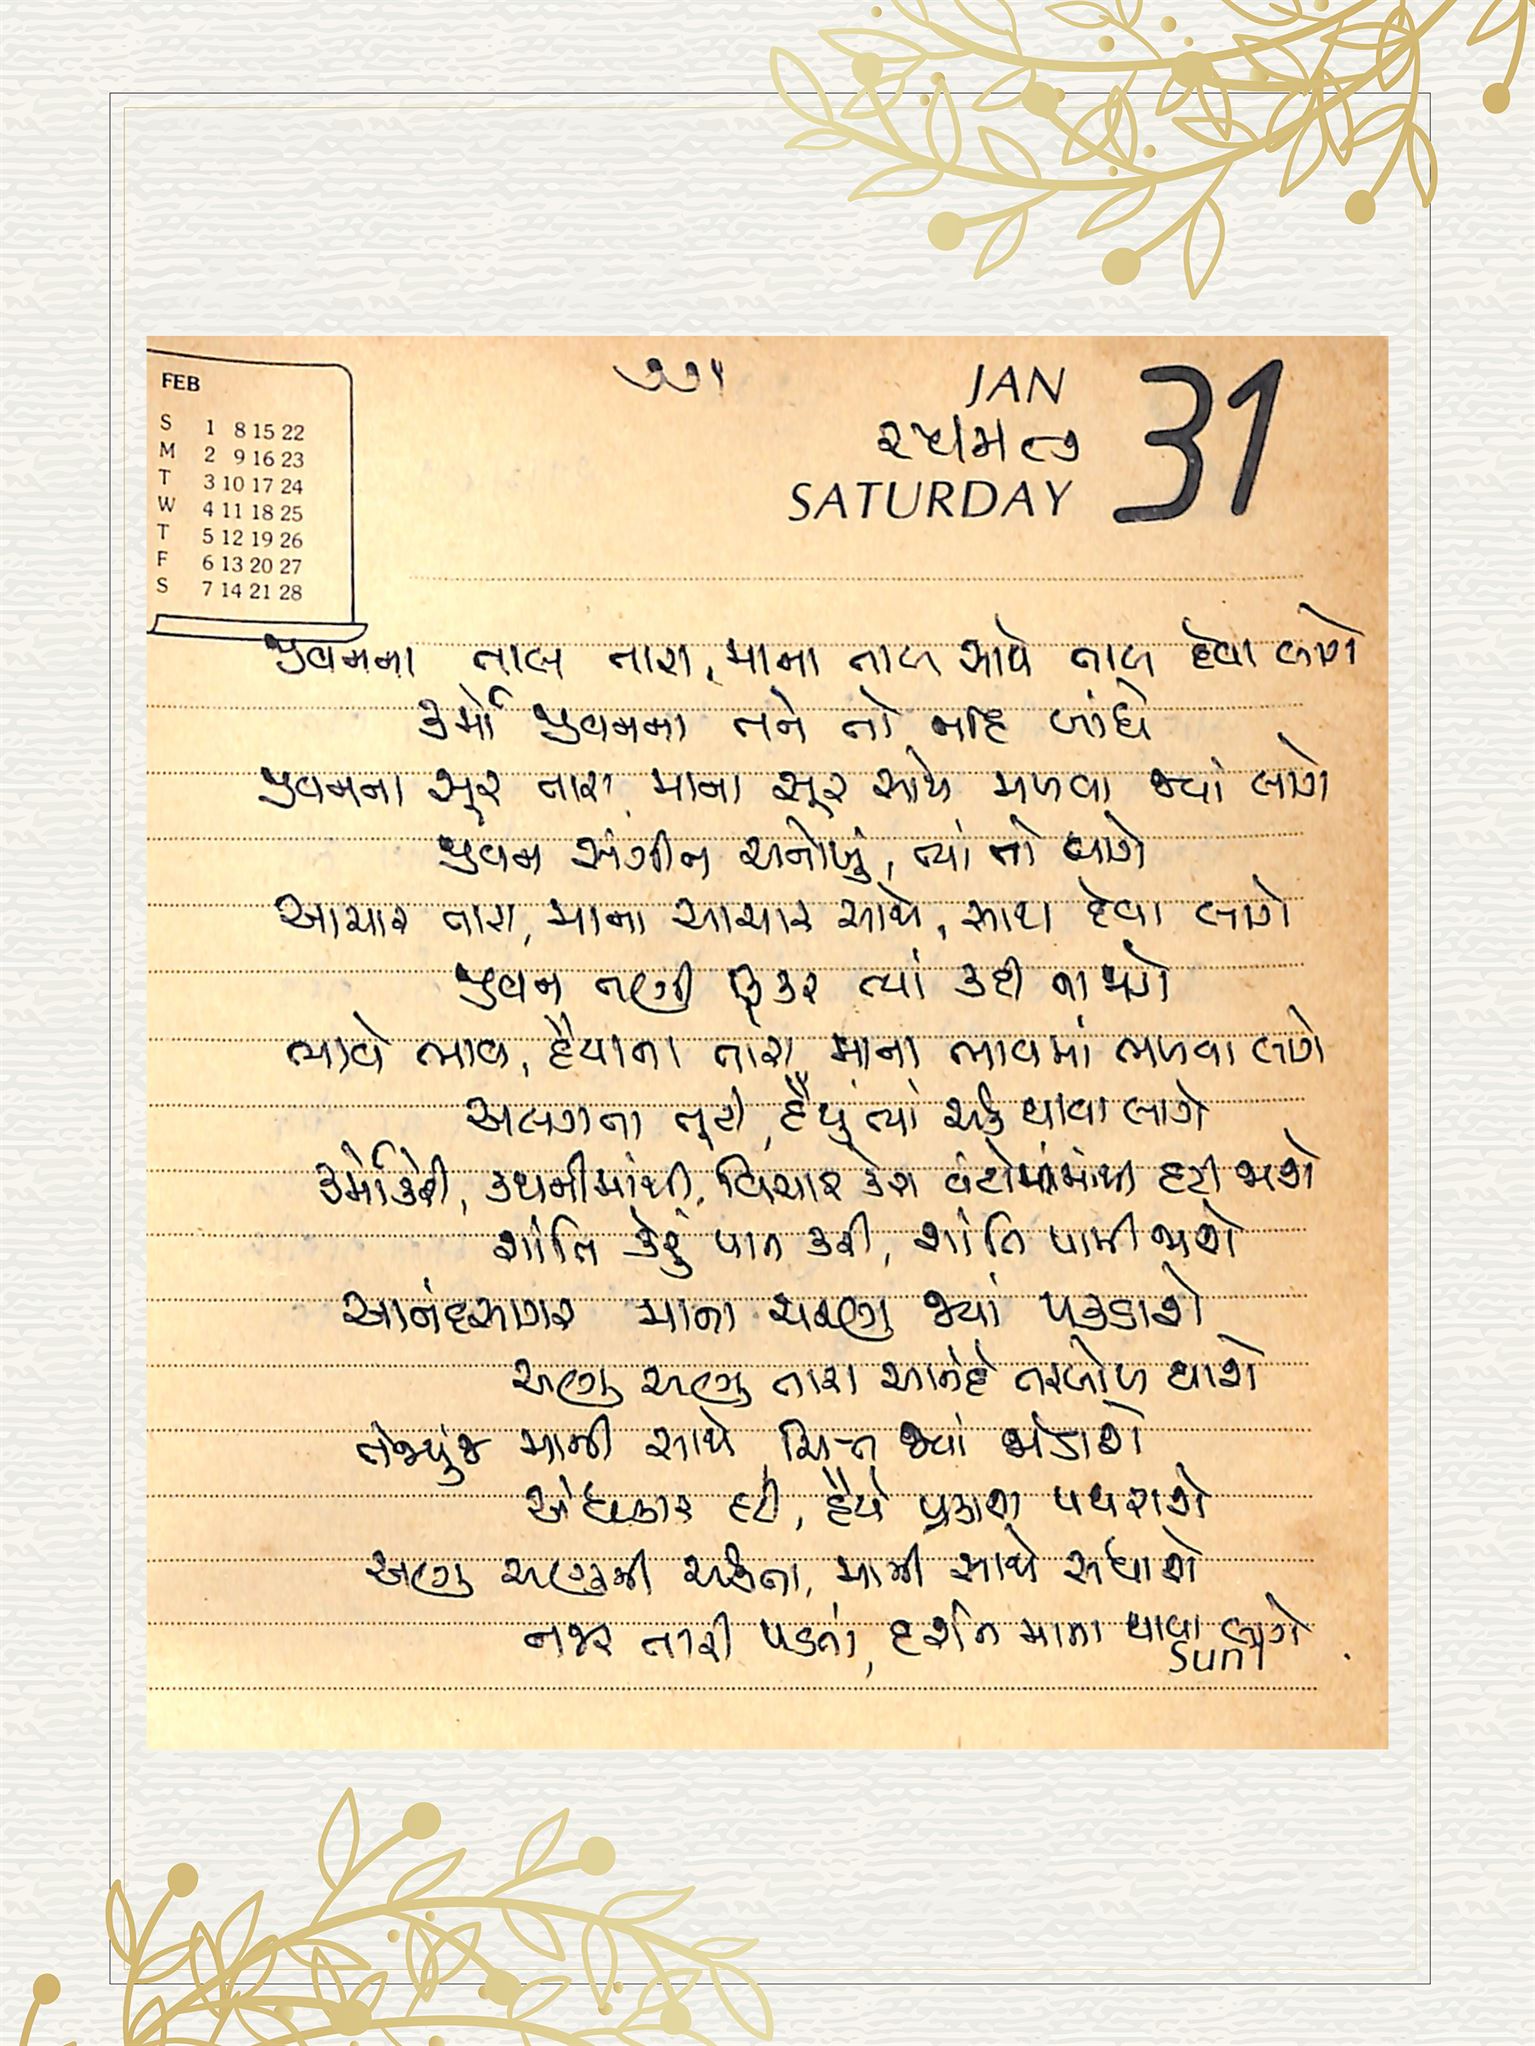 FEB
S 1 8 15 22
M 2 9 16 23
T 3 10 17 24
W 4 11 18 25
T 5 12 19 26
F 6 13 20 27
S 7 14 21 28
JAN 31
SATURDAY
જીવનના તાલ તારા, માના તાલ સાથે તાલ દેવા લાગે
કર્મો જીવનના તને તો નહિ બાંધે
જીવનના સૂર તારા માના સૂર સાથે મળવા જ્યાં લાગે
જીવન સંગીત અનોખું, ત્યાં તો વાગે
આચાર તારા, માના આચાર સાથે, સાથ દેવા લાગે
જીવન તણી ફિકર ત્યાં કદી ના જાગે
ભાવે ભાવ, હૈયાના તારા માના ભાવમાં ભળવા લાગે
અલગતા તૂટી, હૈયું ત્યાં એક થાવા લાગે
કર્મોકેરી, કથનીમાંથી, વિચાર કેરા હટી જાશે
શાંતિ કેરું પાન કરી, શાંતિ પામી જાશે
આનંદસાગર માના ચરણ જ્યાં પકડાશે
અણુ અણુ તારા આનંદે તરબોળ થાશે
તેજપુંજ માની સાથે ચિત્ત જ્યાં જોડાશે
અંધકાર હટી, હૈયે પ્રકાશ પથરાશે
અણુ અણુની એકતા, માની સાથે સધાશે
નજર તારી પડતાં, દર્શન માના થાવા લાગે
Sun 1